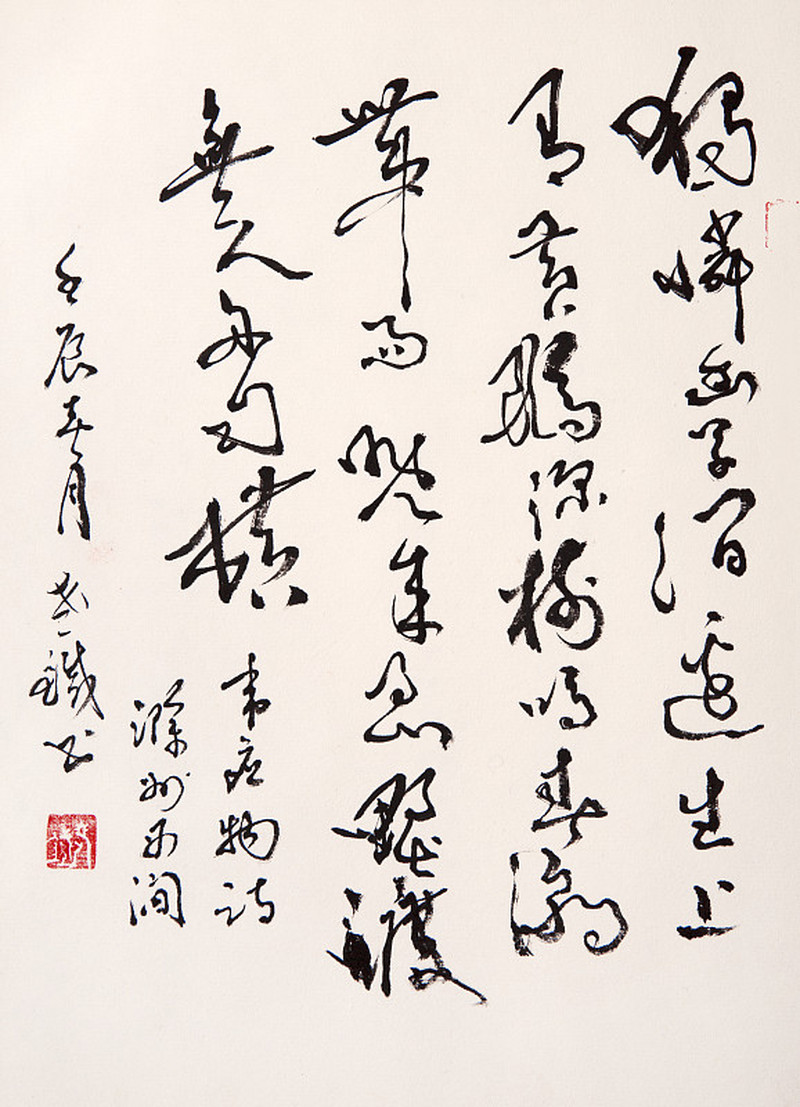 獨憐幽草澗邊生上
有黃鸝深樹鳴春潮
帶雨晚來急野渡
無人舟自橫
韋應物詩
滁州西澗
壬辰春月 鐵書